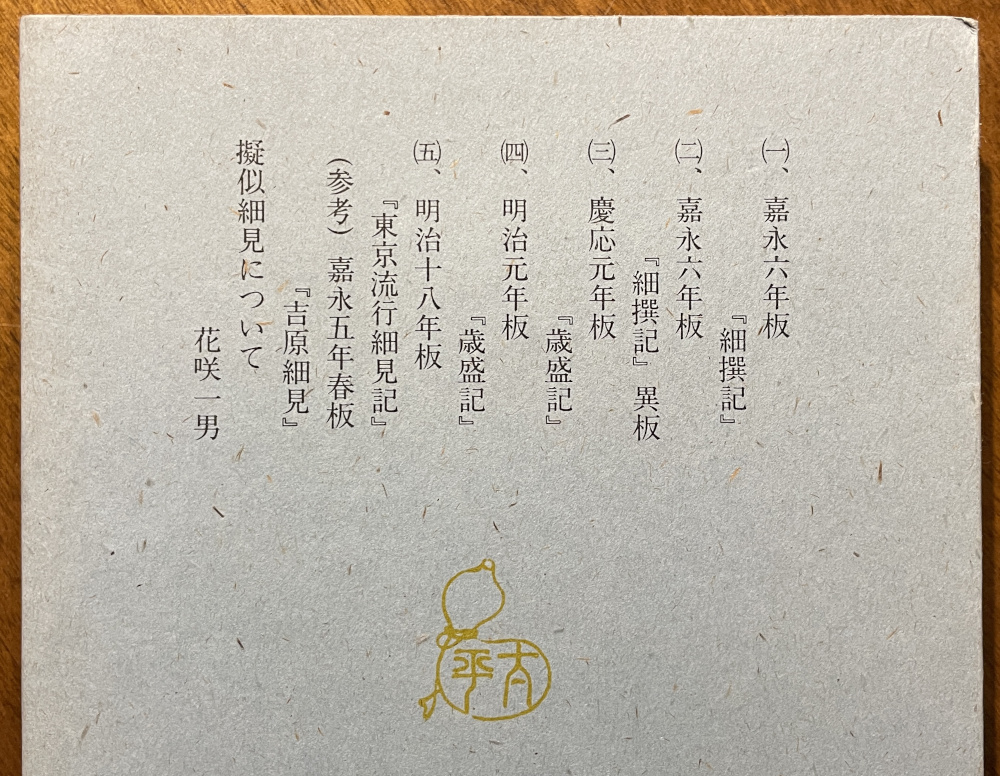 ㈠、嘉永六年板
『細撰記』
㈡、嘉永六年板
『細撰記』異板
㈢、慶応元年板
『歳盛記』
㈣、明治元年板
『歳盛記』
㈤、明治十八年板
『東京流行細見記』
(参考) 嘉永五年春板
『吉原細見』
擬似細見について
花咲一男
太平